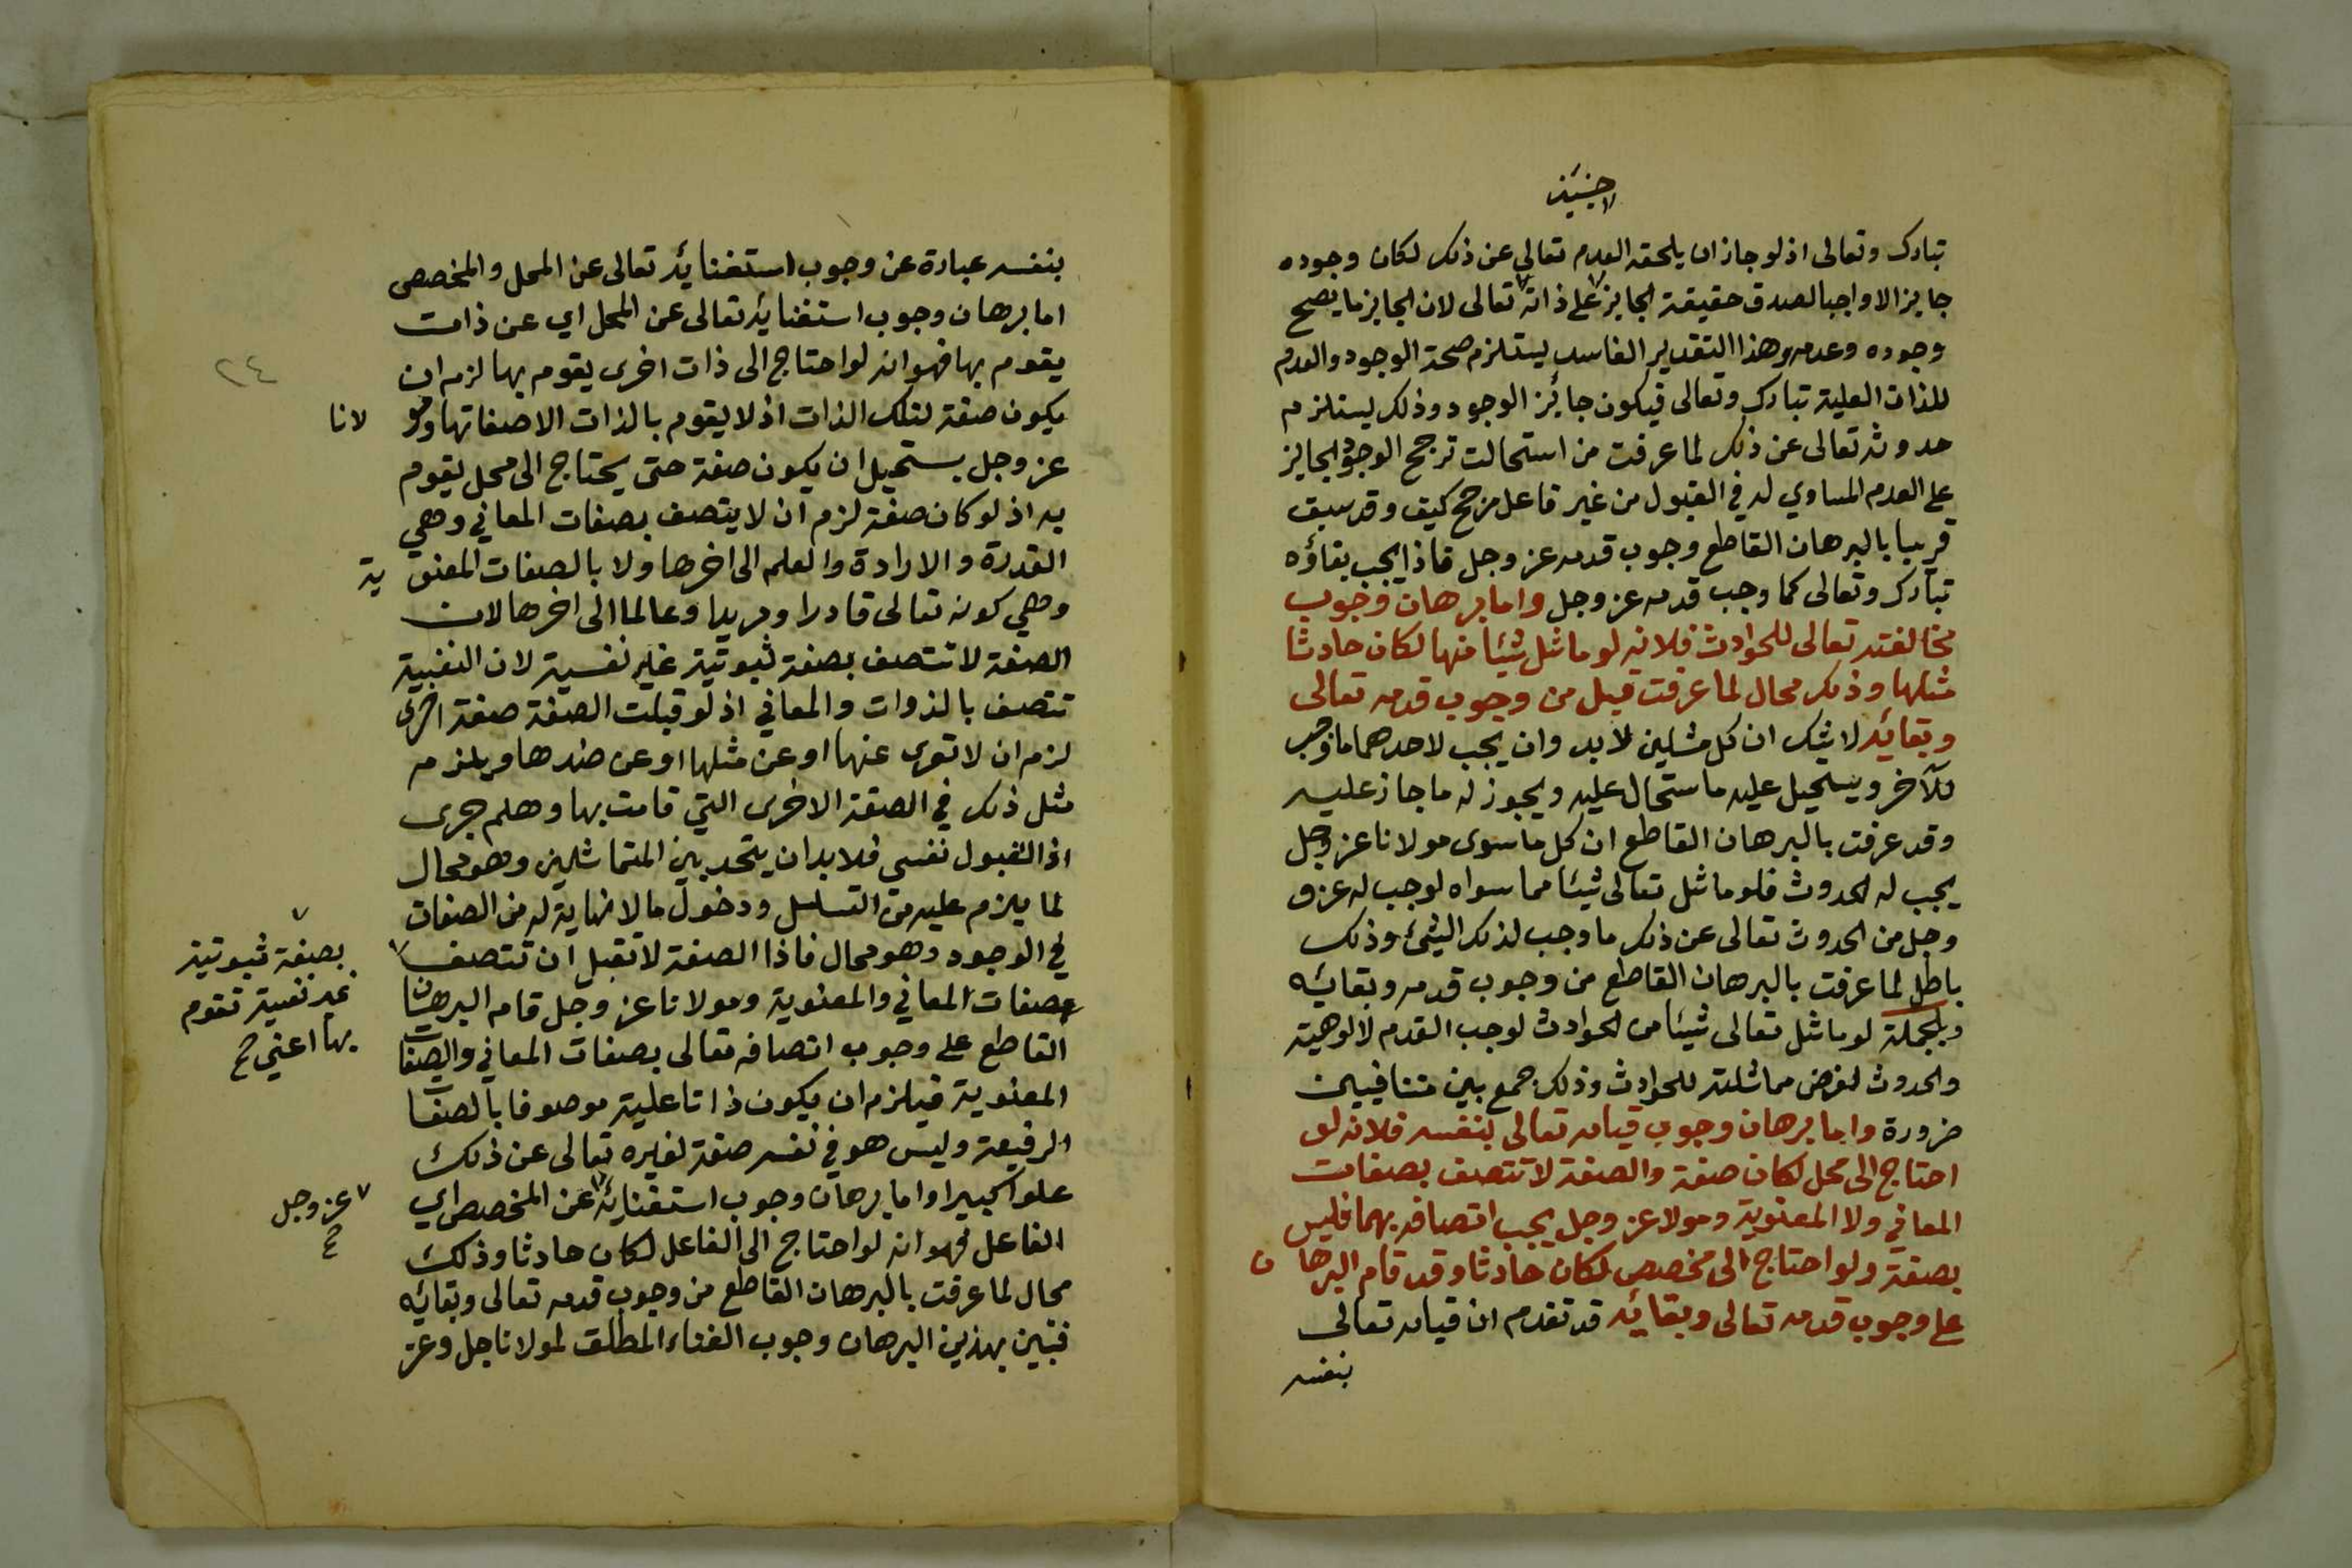 حينئذ
تبارك وتعالى اذ لو جاز ان يلحقه العدم تعالى عن ذلك لكان وجوده
جايزا لا واجبا لصدق حقيقة الجايز على ذاته تعالى لان الجايز ما يصح
وجوده وعدمه وهذا التقدير الفاسد يستلزم صحة الوجود والعدم
للذات العلية تبارك وتعالى فيكون جائز الوجود وذلك يستلزم
حدوثه تعالى عن ذلك لما عرفت من استحالت ترجح الوجود الجايز
على العدم المساوي له في القبول من غير فاعل مرجح كيف وقد سبق
قريبا بالبرهان القاطع وجوب قدمه عز وجل فاذا يجب بقاؤه
تبارك وتعالى كما وجب قدمه عز وجل واما برهان وجوب
مخالفته تعالى للحوادث فلانه لو ماثل شيئا منها لكان حادثا
مثلها وذلك محال لما عرفت قبل من وجوب قدمه تعالى
وبقائه لا شك ان كل مثلين لابد وان يجب لاحدهما ما وجب
للآخر ويستحيل عليه ما ستحال عليه ويجوز له ما جاز عليه
وقد عرفت بالبرهان القاطع ان كل ما سوى مولانا عز وجل
يجب له الحدوث فلو ماثل تعالى شيئا مما سواه لوجب له عز و
وجل من الحدوث تعالى عن ذلك ما وجب لذلك الشئ وذلك
باطل لما عرفت بالبرهان القاطع من وجوب قدمه وبقائه
وبلجملة لو ماثل تعالى شيئا من الحوادث لوجب القدم لالوهية
والحدوث لفرض مماثلته للحوادث وذلك جمع بين متنافيين
ضرورة واما برهان وجوب قيامه تعالى بنفسه فلانه لو
احتاج الى محل لكان صفة والصفة لا تتصف بصفات
المعاني ولا المعنوية ومولا عز وجل يجب اتصافه بهما فليس
بصفة ولو احتاج الى مخصص لكان حادثا وقد قام البرهان
على وجوب قدمه تعالى وبقائه قد تقدم ان قيامه تعالى
بنفسه
بنفسه عبارة عن وجوب استغنائه تعالى عن المحل والمخصص
اما برهان وجوب استغنائه تعالى عن المحل اي عن ذات
يقوم بها فهو انه لو احتاج الى ذات اخرى يقوم بها لزم ان
٢٤
يكون صفة لتلك الذات اذ لا يقوم بالذات الا صفاتها ومو لانا
عز وجل يستحيل ان يكون صفة حتى يحتاج الى محل يقوم
به اذ لو كان صفة لزم ان لا يتصف بصفات المعاني وهي
القدرة والارادة والعلم الى اخرها ولا بالصفات المعنو ية
وهي كونه تعالى قادرا ومريدا وعالما الى اخرها لان
الصفة لا تتصف بصفة ثبوتية غير نفسية لان النفسية
تتصف بالذوات والمعاني اذ لو قبلت الصفة صفة اخرى
لزم ان لا تعرى عنها او عن مثلها او عن ضدها ويلزم
مثل ذلك في الصفة الاخرى التي قامت بها وهلم جرى
اذ القبول نفسي فلا بد ان يتحد بين المتماثلين وهو محال
لما يلزم عليه من التسلسل ودخول ما لا نهاية له من الصفات
في الوجود وهو محال فاذا الصفة لا تقبل ان تتصف
بصفة ثبوتية
غير نفسية تقوم
بها اعني صح
بصفات المعاني والمعنوية ومولانا عز وجل قام البرهان
القاطع على وجوب اتصافه تعالى بصفات المعاني والصفات
المعنوية فيلزم ان يكون ذاتا علية موصوفا بالصفات
الرفيعة وليس هو في نفسه صفة لغيره تعالى عن ذلك
علوا كبيرا واما برهان وجوب استغنائه عن المخصص اي
عز وجل
صح
الفاعل فهو انه لو احتاج الى الفاعل لكان حادثا وذلك
محال لما عرفت بالبرهان القاطع من وجوب قدمه تعالى وبقائه
فتبين بهذين البرهان وجوب الغناء المطلق لمولانا جل وعز